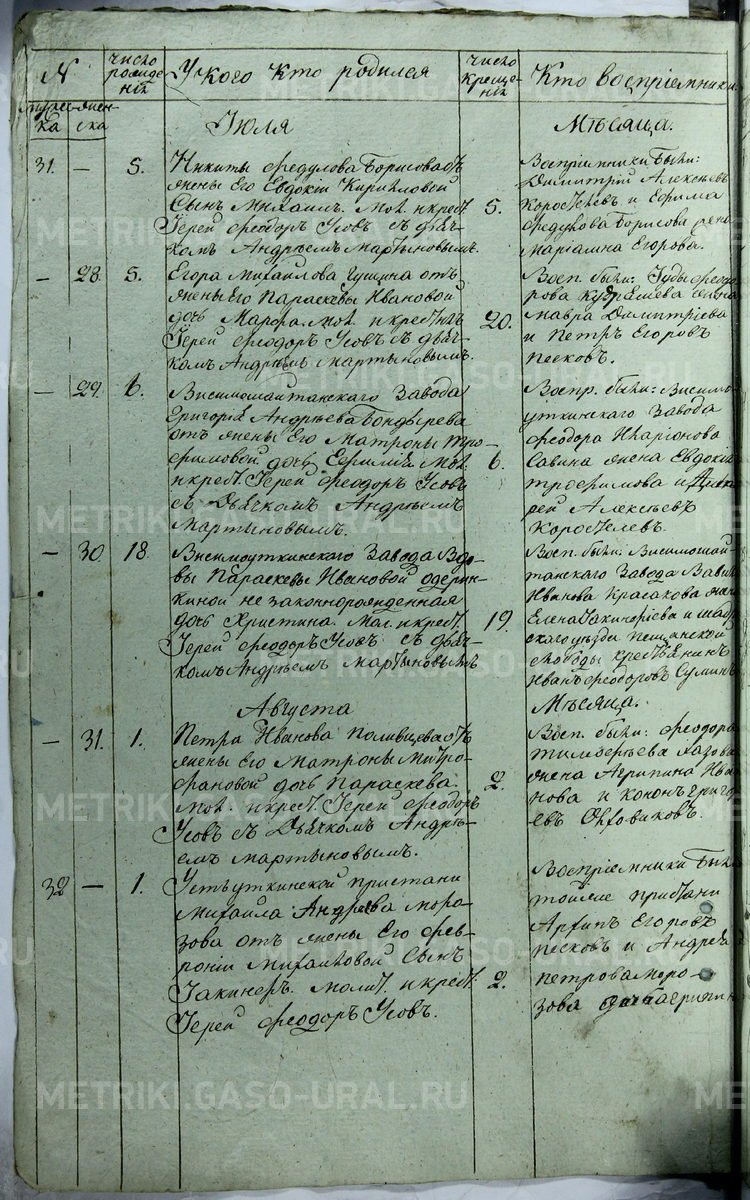 N
число рожде-
нiя
У кого кто родился
число креще-
нiя
Кто воспрiемники
Муже- жен-
ска ска
Июля
Мѣсяца.
31. — 5.
Никиты Федулова Борисова отъ
жены Его Евдокiи Кириловой
Сынъ Михаилъ. Мол. и крест.
Iерей Феодоръ Усовъ съ дьяч-
комъ Андрѣемъ Мартыновымъ.
5.
Воспрiемники были:
Димитрiй Алексѣевъ
Коростелевъ и Ефима
Федулова Борисова жена
Марiамна Егорова.
— 28. 5.
Егора Михаилова Гущина отъ
жены Его Параскевы Ивановой
дочь Марфа. Мол. и крестилъ
Iерей Феодоръ Усовъ съ дьяч-
комъ Андрѣемъ Мартыновымъ.
20.
Восп. были: Iуды Федо-
рова жена
Мавра Димитрiева
и Петръ Егоровъ
Песковъ.
— 29. 6.
Висимошайтанскаго Завода
Григорiя Андрѣева Бондырева
отъ жены Его Матроны Тро-
фимовой дочь Ефимiя. Мол.
и крест. Iерей Феодоръ Усовъ
съ Дьячкомъ Андрѣемъ
Мартыновымъ.
6.
Воспр. были: Висимо-
уткинскаго Завода
Феодора Иларiонова
Савина жена Евдокiя
Трофимова и Анд-
рей Алексѣевъ
Коростелевъ.
— 30. 18.
Висимоуткинскаго Завода Вдо-
вы Параскевы Ивановой
незаконнорожденная
дочь Христина. Мол. и крест.
Iерей Феодоръ Усовъ съ дьяч-
комъ Андрѣемъ Мартыновымъ
19.
Восп. были: Висимошай-
танскаго Завода Вавилы
Иванова Красакова жена
Елена и
скаго уѣзда Пещанской
слободы крестьянинъ
Иванъ Феодоровъ Суминъ
Августа
Мѣсяца.
— 31. 1.
Петра Иванова отъ
жены Его Матроны Митро-
фановой дочь Параскева.
Мол. и крест. Iерей Феодоръ
Усовъ съ Дьячкомъ Андрѣ-
емъ Мартыновымъ.
2.
Восп. были: Феодора
жена Агрипина Ива-
нова и Кононъ Григо-
евъ
32 — 1.
Устьуткинской пристани
Михаила Андрѣева Моро-
зова отъ жены Его Фев-
ронiи Михаиловой Сынъ
Iакинѳъ. Молит. и крест.
Iерей Феодоръ Усовъ.
2.
Воспрiемники были
тойже пристани
Архипъ Егоровъ
Песковъ и Андрея
Петрова Моро-
зова дочь
METRIKI.GASO-URAL.RU